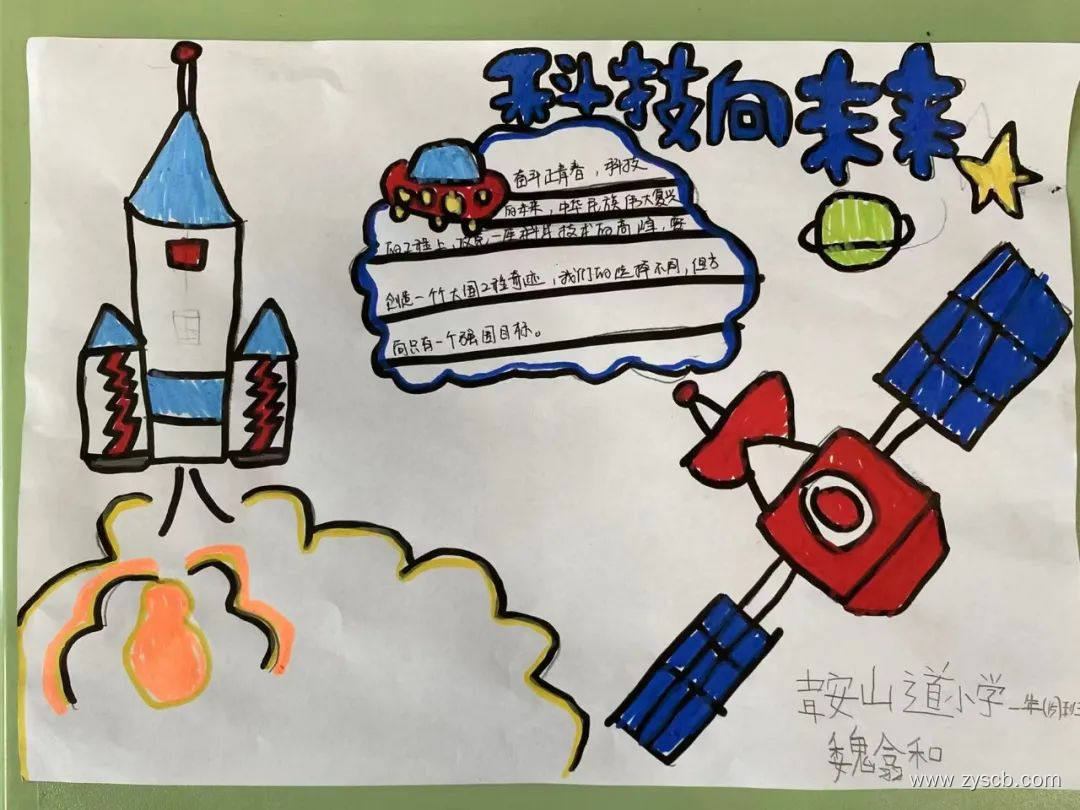 科技向未来
奋斗正青春，科技
向未来，中华民族伟大复兴
的工程上，攻克一座科学技术的高峰，要
创造一个大国工程奇迹，我们的选择不同，但方
向只有一个强国目标。
鞍山道小学
魏翕和
www.zyscb.com